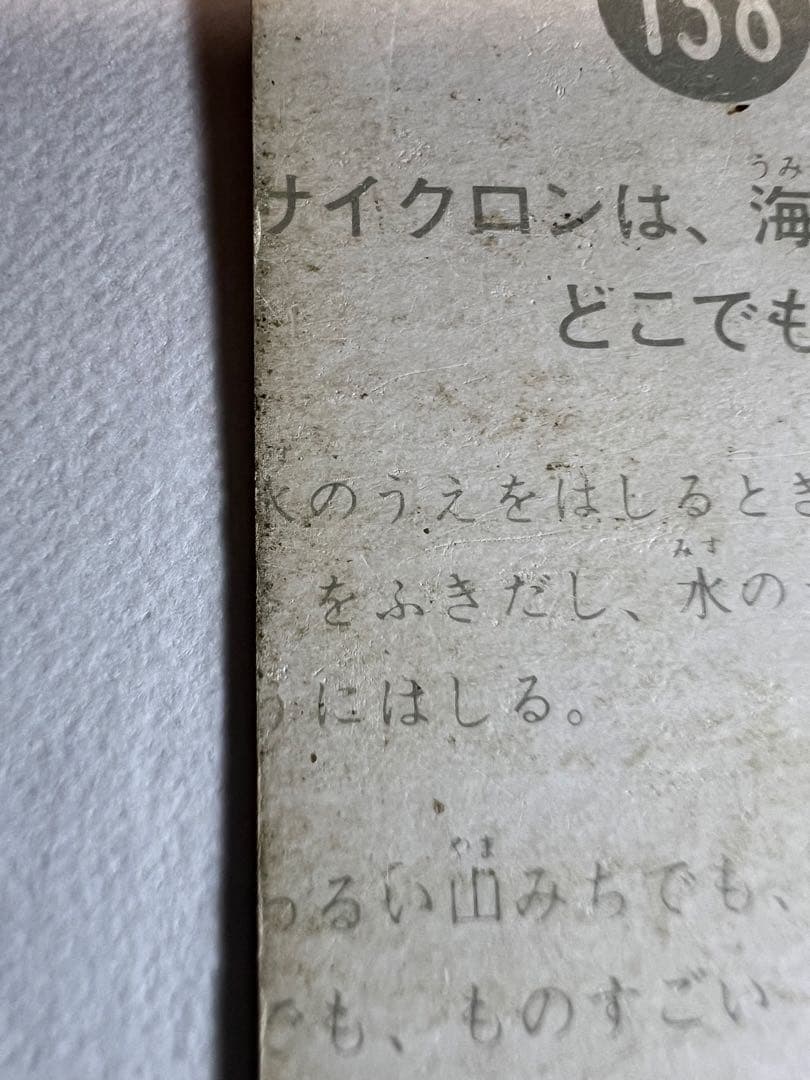 138
サイクロンは、海
うみ
どこでも
水のうえをはしるとき
をふきだし、水の
みず
うにはしる。
わるい山みちでも、
やま
でも、ものすごい